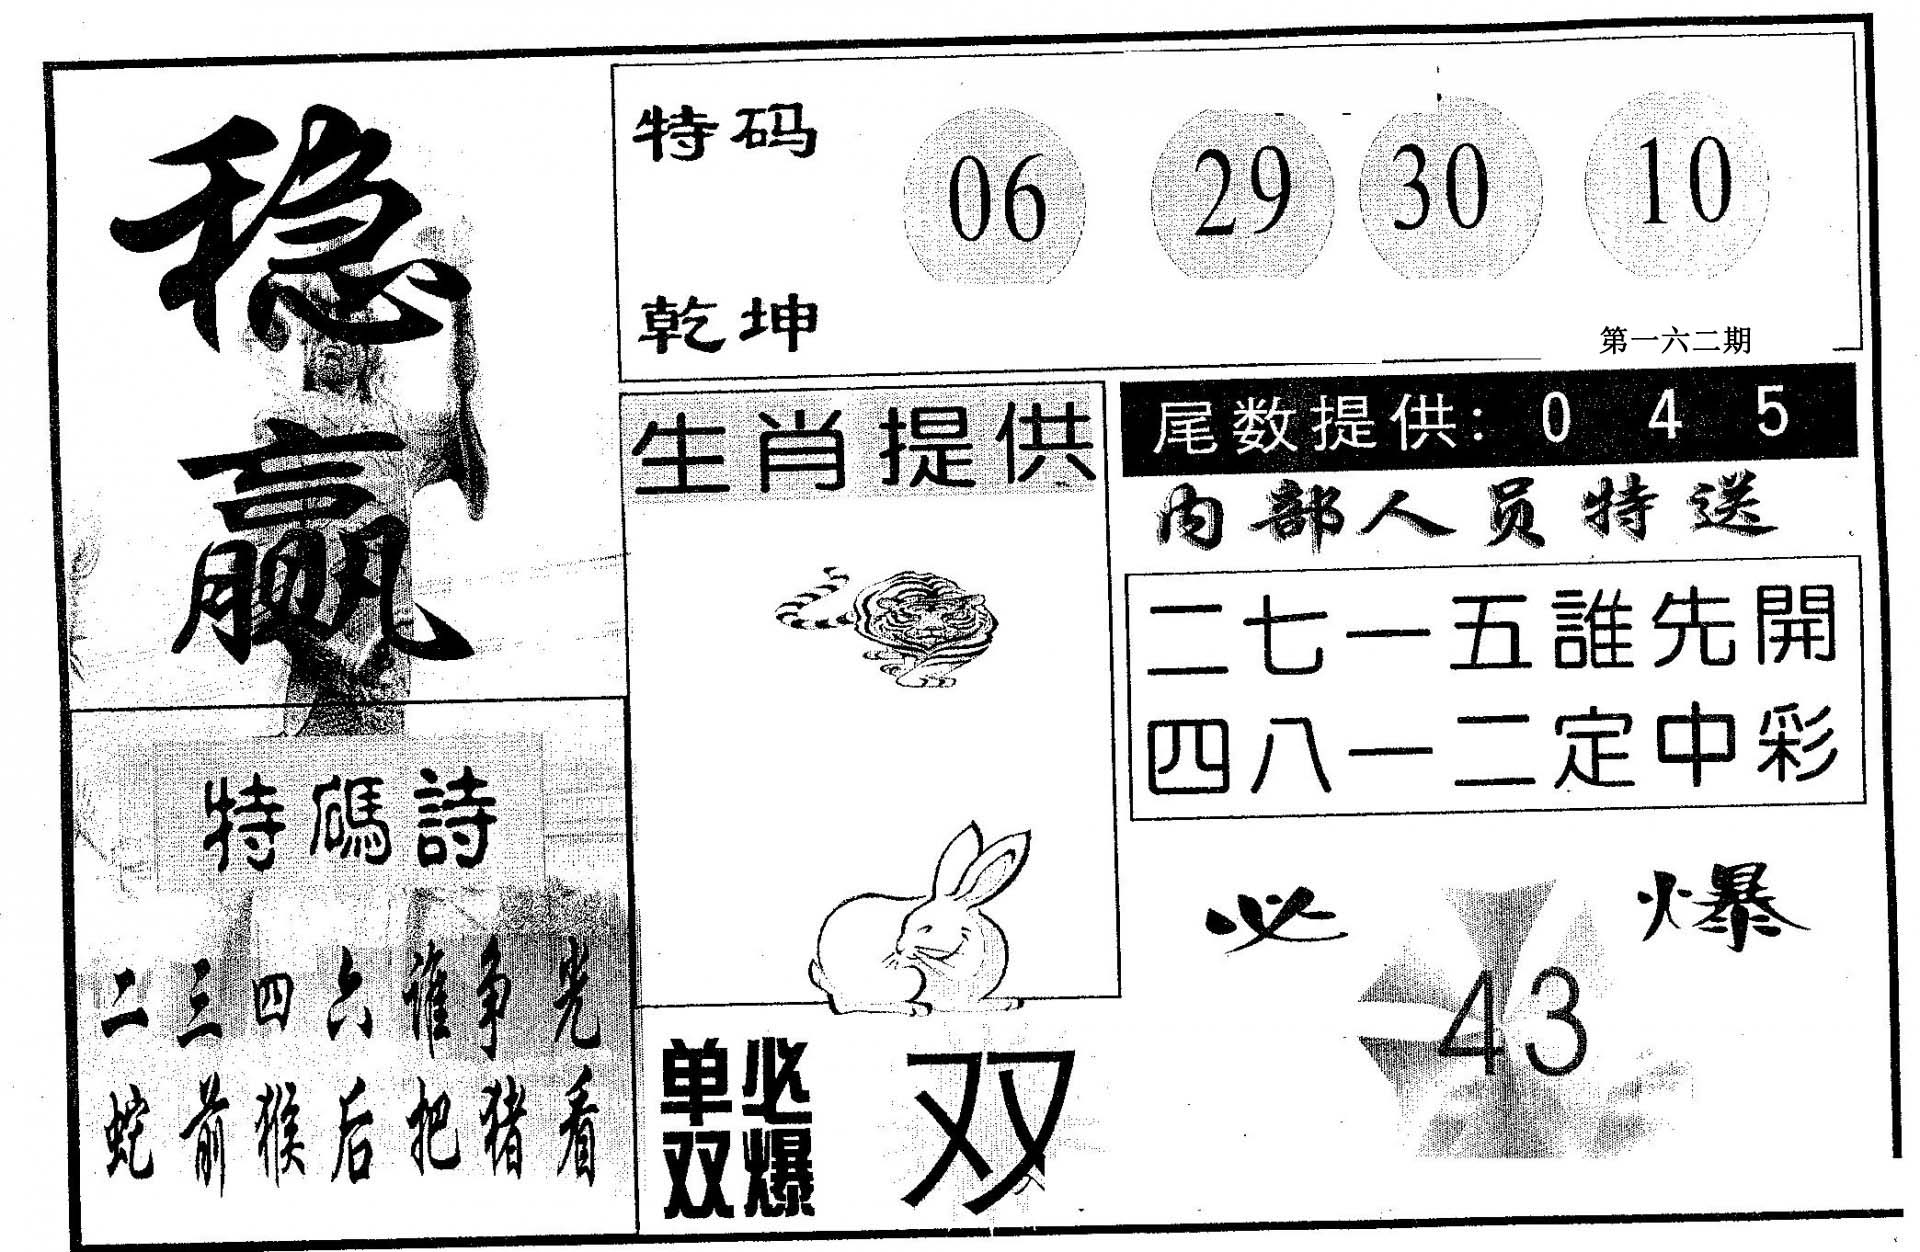 稳
赢
特码
06 29 30 10
乾坤
第一六二期
生肖提供
尾数提供: 0 4 5
内部人员特送
二七一五誰先開
四八一二定中彩
特碼詩
二三四六谁争光
蛇前猴后把猪看
必爆
43
单双
必爆
双